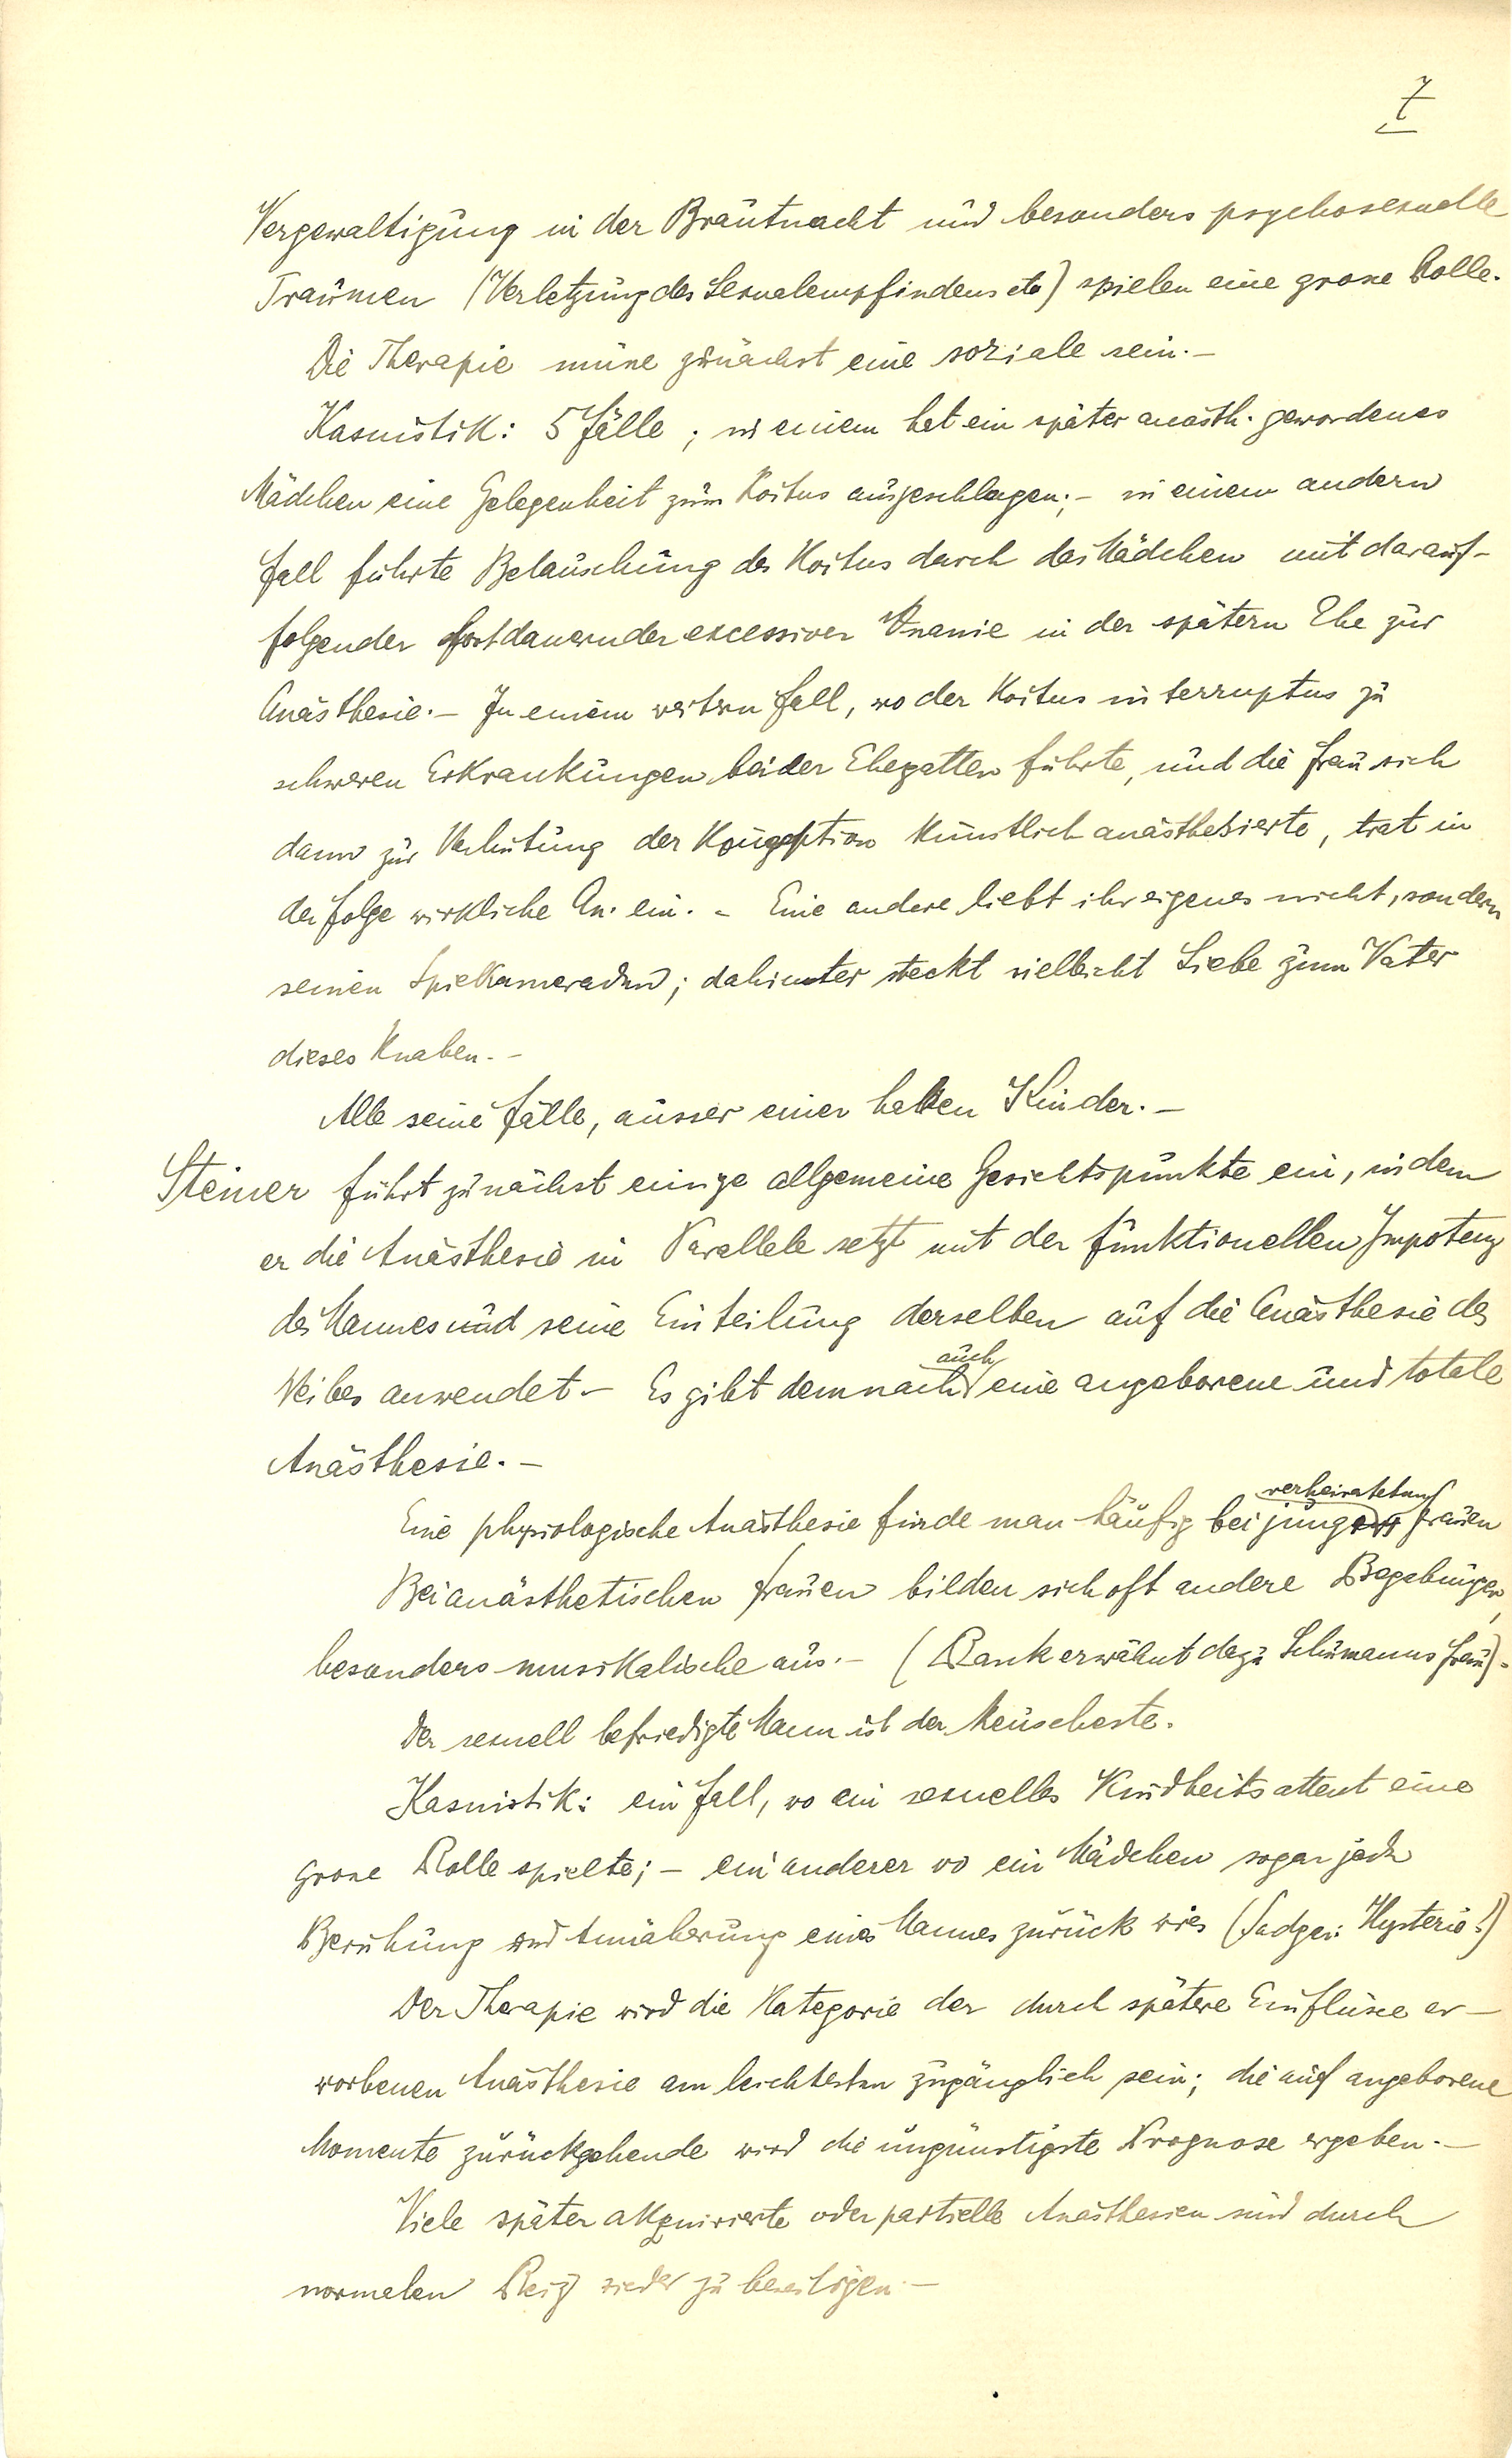 7
Vergewaltigung in der Brautnacht und besonders psychosexuelle
Traumen (Verletzung des Sexualempfindens etc) spielen eine grosse Rolle.
Die Therapie müsse zunächst eine soziale sein. –
Kasuistik: 5 Fälle; in einem hat ein später anästh. gewordenes
Mädchen eine Gelegenheit zum Koitus ausgeschlagen; – in einem andern
Fall führte Belauschung des Koitus durch das Mädchen mit darauf-
folgender fortdauernder excessiver Onanie in der spätern Ehe zur
Anästhesie. – In einem weitern Fall, wo der Koitus interruptus zu
schweren Erkrankungen beider Ehegatten führte, und die Frau sich
dann zur Verhütung der Konzeption künstlich anästhesierte, trat in
der Folge wirkliche An. ein. – Eine andere liebt ihr eigenes nicht, sondern
seinen Spielkameraden; dahinter steckt vielleicht Liebe zum Vater
dieses Knaben. –
Alle seine Fälle, ausser einer hatten Kinder. –
Steiner führt zunächst einige allgemeine Gesichtspunkte ein, indem
er die Anästhesie in Parallele setzt mit der funktionellen Impotenz
des Mannes und seine Einteilung derselben auf die Anästhesie des
Weibes anwendet. – Es gibt demnach auch eine angeborene und totale
Anästhesie. –
Eine physiologische Anästhesie finde man häufig bei jung verheirateten Frauen
Bei anästhetischen Frauen bilden sich oft andere Begabungen,
besonders musikalische aus. – (Rank erwähnt dazu Schumanns Frau). –
Der sexuell befriedigte Mann ist der keuscheste.
Kasuistik: ein Fall, wo ein sexuelles Kindheitsattent eine
grosse Rolle spielte; – ein anderer wo ein Mädchen sogar jede
Berührung und Annäherung eines Mannes zurück wies (Sadger: Hysterie!)
Der Therapie wird die Kategorie der durch spätere Einflüsse er-
worbenen Anästhesie am leichtesten zugänglich sein; die auf angeborene
Momente zurückgehende wird die ungünstigste Prognose ergeben. –
Viele später akquirierte oder partielle Anästhesien sind durch
normalen Reiz wieder zu beseitigen –